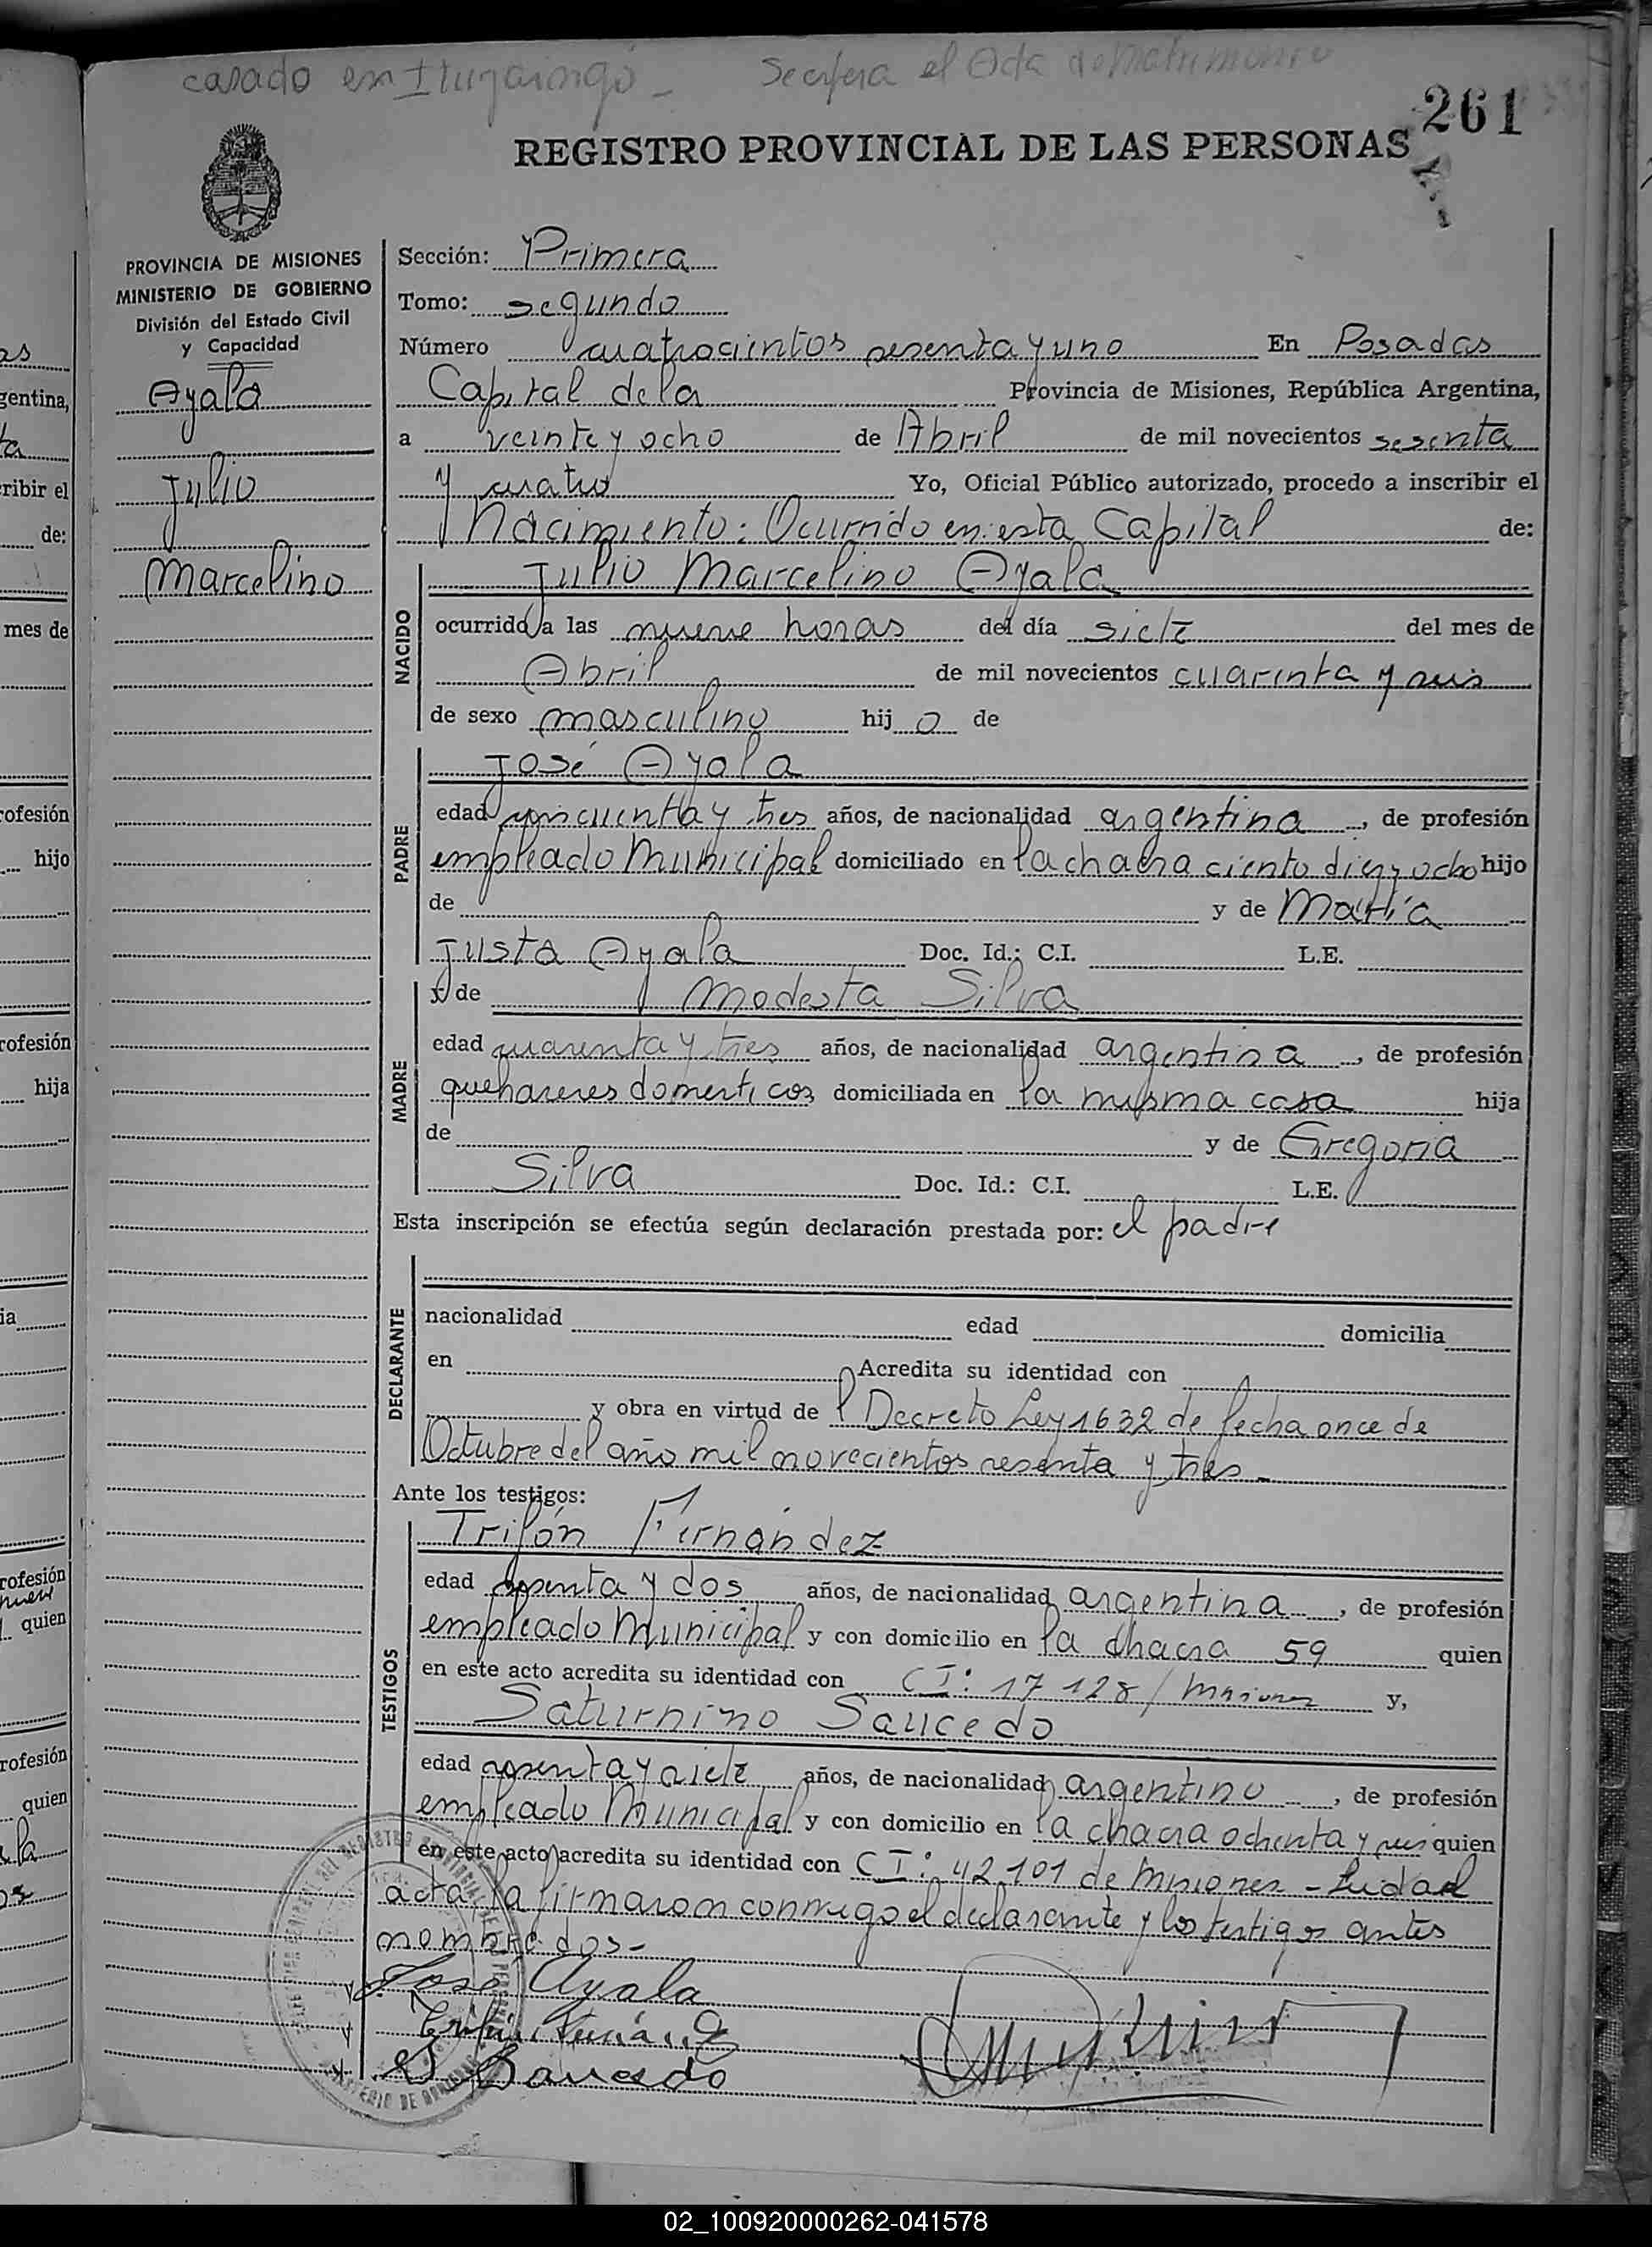 casado en Ituzaingó - Se espera el Acta de Matrimonio
261
REGISTRO PROVINCIAL DE LAS PERSONAS
PROVINCIA DE MISIONES
MINISTERIO DE GOBIERNO
División del Estado Civil
y Capacidad
Ayala
Julio
Marcelino
Sección: Primera
Tomo: segundo
Número cuatrocientos sesenta y uno En Posadas
Capital de la Provincia de Misiones, República Argentina,
a veinte y ocho de Abril de mil novecientos sesenta
y cuatro Yo, Oficial Público autorizado, procedo a inscribir el
Nacimiento: Ocurrido en esta Capital de:
NACIDO
Julio Marcelino Ayala
ocurrido a las nueve horas del día siete del mes de
Abril de mil novecientos cuarenta y seis
de sexo masculino hijo de
PADRE
José Ayala
edad cincuenta y tres años, de nacionalidad argentina, de profesión
empleado Municipal domiciliado en la chacra ciento diez y ocho hijo
de y de María
Justa Ayala Doc. Id.: C.I. L.E.
MADRE
y de Modesta Silva
edad cuarenta y tres años, de nacionalidad argentina, de profesión
quehaceres domesticos domiciliada en la misma casa hija
de y de Gregoria
Silva Doc. Id.: C.I. L.E.
Esta inscripción se efectúa según declaración prestada por: el padre
DECLARANTE
nacionalidad edad domicilia
en Acredita su identidad con
y obra en virtud de l Decreto Ley 1632 de fecha once de
Octubre del año mil novecientos sesenta y tres -
Ante los testigos:
TESTIGOS
Trifón Fernández
edad sesenta y dos años, de nacionalidad argentina, de profesión
empleado Municipal y con domicilio en la chacra 59 quien
en este acto acredita su identidad con CI: 17128/Misiones y,
Saturnino Saucedo
edad sesenta y siete años, de nacionalidad argentino, de profesión
empleado Municipal y con domicilio en la chacra ochenta y seis quien
en este acto acredita su identidad con CI: 42101 de Misiones - Leida el
acta, la firmaron conmigo el declarante y los testigos antes
nombrados -
José Ayala
Trifón Fernández
S. Saucedo
02_100920000262-041578